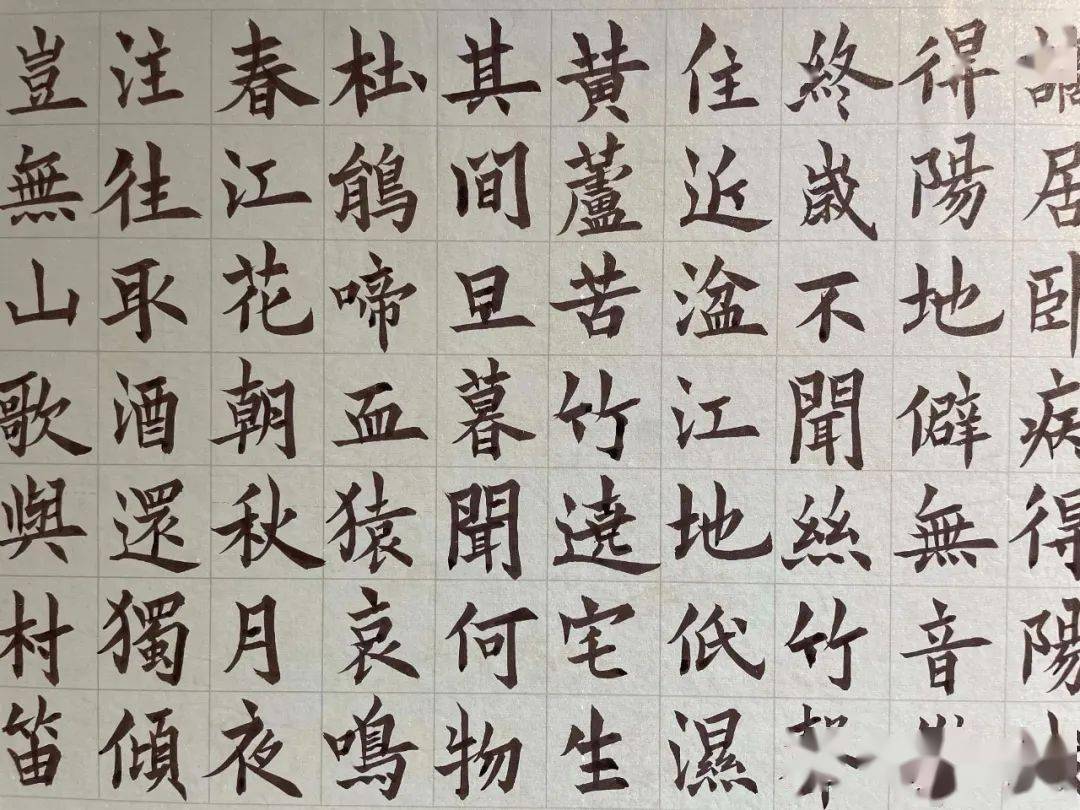 居卧病得陽
得陽地僻無音
終歲不聞絲竹
住近湓江地低濕
黃蘆苦竹遶宅生
其間旦暮聞何物
杜鵑啼血猿哀鳴
春江花朝秋月夜
注往取酒還獨傾
豈無山歌與村笛